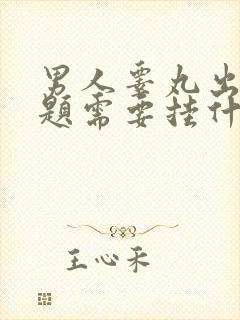 男人睾丸出
题需要挂什
王心采